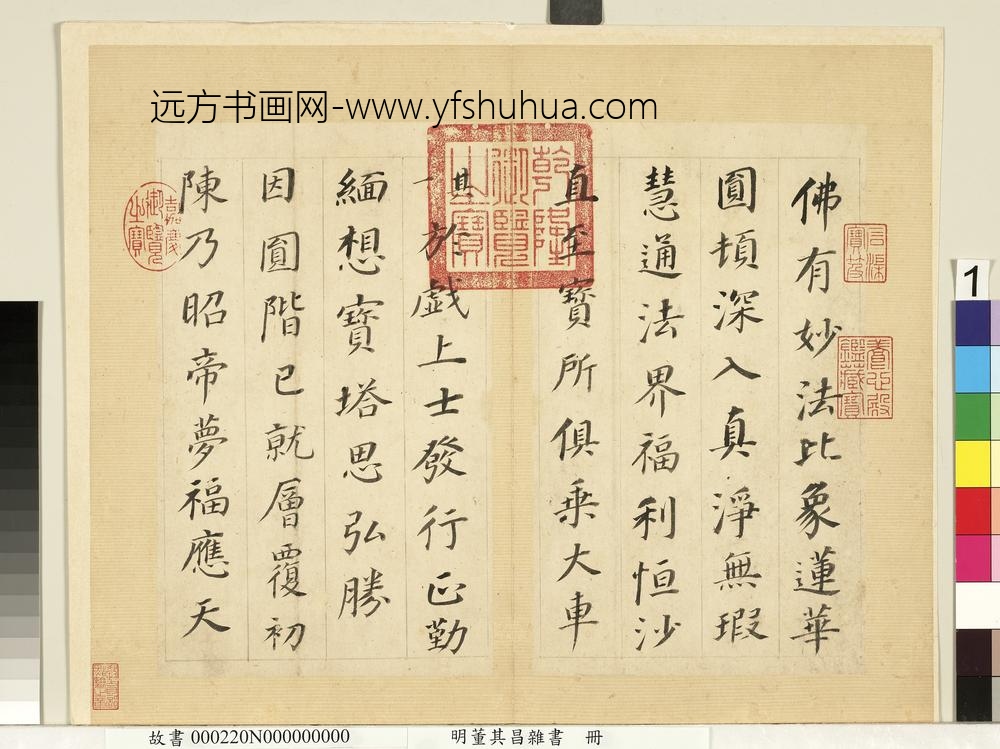 远方书画网-www.yfshuhua.com
石渠寶笈
養心殿鑑藏寶
佛有妙法比象蓮華
圓頓深入真淨無瑕
慧通法界福利恒沙
直至寶所俱乘大車
乾隆御覽之寶
其一於戲上士發行正勤
緬想寶塔思弘勝
因圓階已就層覆初
陳乃昭帝夢福應天
嘉慶御覽之寶
1
故書 000220N000000000 明董其昌雜書 冊